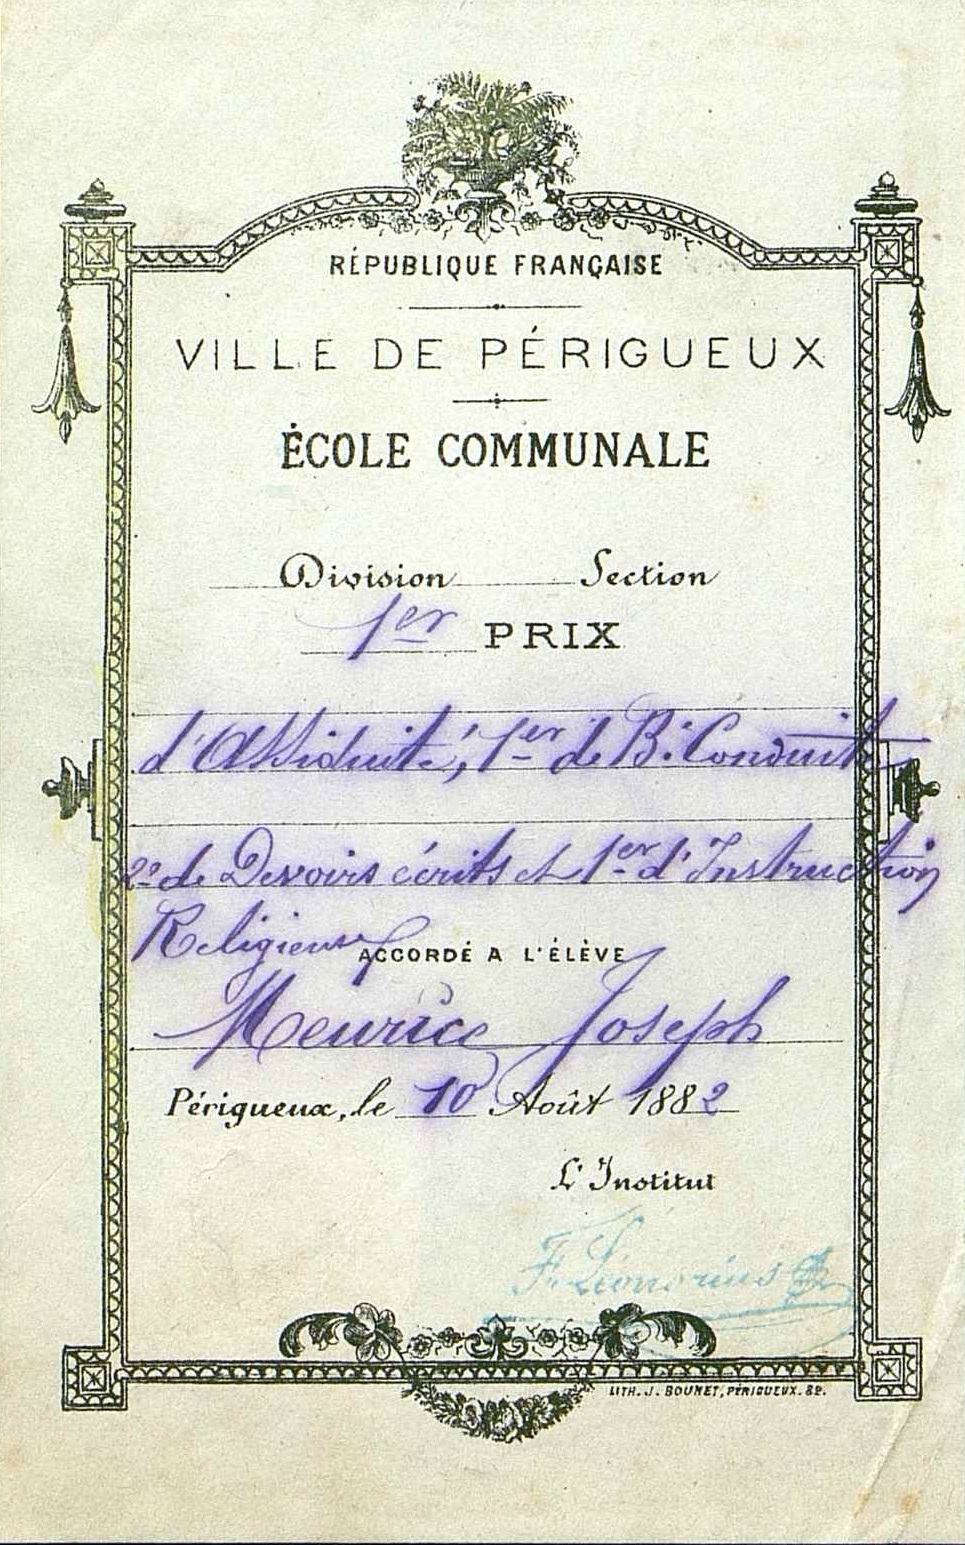 RÉPUBLIQUE FRANÇAISE
VILLE DE PÉRIGUEUX
ÉCOLE COMMUNALE
Division Section
1er PRIX
d'Assiduité, 1er de B. Conduite
2e de Devoirs écrits et 1er d'Instruction
Religieuse
ACCORDÉ A L'ÉLÈVE
Meurice Joseph
Périgueux, le 10 Août 1882
L'Institut
F. Léonorius
LITH. J. BOUNET, PÉRIGUEUX. 82.